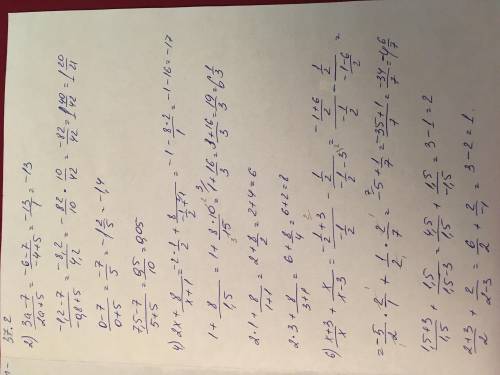 37.2
2) (3a-7)/(2a+5) = (-6-7)/(-4+5) = -13/1 = -13
(-1,2-7)/(-0,8+5) = -8,2/4,2 = -82/10 · 10/42 = -82/42 = 1 40/42 = 1 20/21
(0-7)/(0+5) = -7/5 = -1 2/5 = -1,4
(7,5-7)/(5+5) = 0,5/10 = 0,05
4) 2x + 8/(x+1) = 2·-1/2 + 8/(-1/2+1) = -1-8·2/1 = -1-16 = -17
1 + 8/1,5 = 1 + 8·10/15 = 1+16/3 = 3+16/3 = 19/3 = 6 1/3
2·1 + 8/(1+1) = 2 + 8/2 = 2+4 = 6
2·3 + 8/(3+1) = 6 + 8/4 = 6+2 = 8
6) (x+3)/x + x/(x-3) = (-1/2+3)/(-1/2) - (1/2)/(-1/2-3) = (-1+6/2)/(-1/2) - (1/2)/(-1-6/2) =
= -5/2 · 2/1 + 1/2 · 2/7 = -5 + 1/7 = -35+1/7 = -34/7 = -4 6/7
(1,5+3)/1,5 + 1,5/(1,5-3) = 4,5/1,5 + 1,5/-1,5 = 3-1 = 2
(2+3)/2 + 2/(2-3) = 6/2 + 2/-1 = 3-2 = 1.